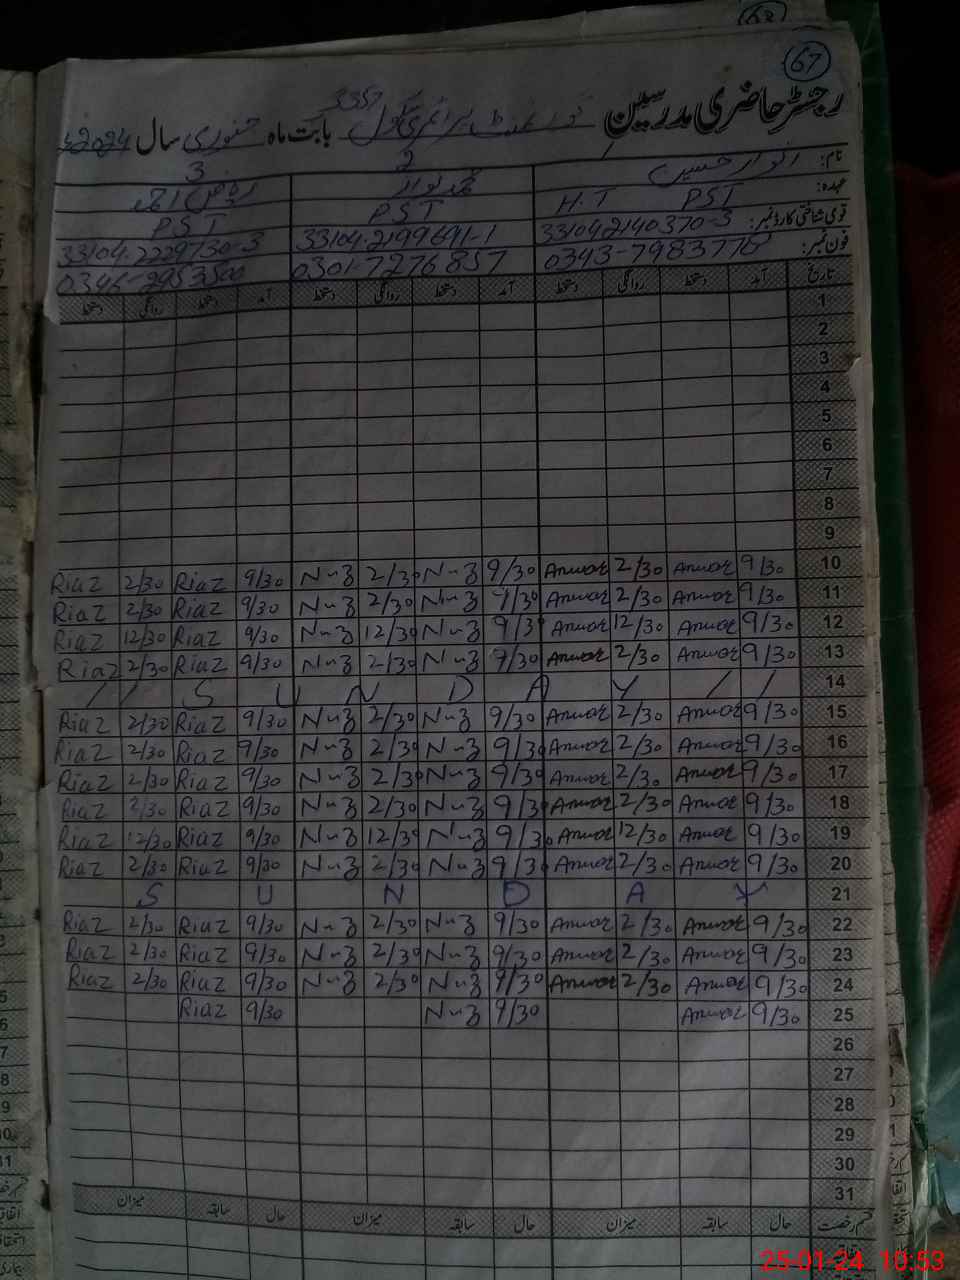 63
67
رجسٹر حاضری مدرسین گورنمنٹ پرائمری سکول 335 بابت ماہ جنوری سال 2024ء
نام: انوار حسین 2 محمد نواز 3 ریاض احمد
عہدہ: H.T PST PST PST
قومی شناختی کارڈ نمبر: 331042140370-3 33104-2199691-1 33104-2229730-3
فون نمبر: 0343-7983778 0301-7276857 0346-2953500
تاریخ آمد دستخط روانگی دستخط آمد دستخط روانگی دستخط آمد دستخط روانگی دستخط
1
2
3
4
5
6
7
8
9
Riaz 2/30 Riaz 9/30 N-z 2/30 N-z 9/30 Anwar 2/30 Anwar 9/30 10
Riaz 2/30 Riaz 9/30 N-z 2/30 N-z 9/30 Anwar 2/30 Anwar 9/30 11
Riaz 12/30 Riaz 9/30 N-z 12/30 N-z 9/30 Anwar 12/30 Anwar 9/30 12
Riaz 2/30 Riaz 9/30 N-z 2/30 N-z 9/30 Anwar 2/30 Anwar 9/30 13
/ / S U N D A Y / / 14
Riaz 2/30 Riaz 9/30 N-z 2/30 N-z 9/30 Anwar 2/30 Anwar 9/30 15
Riaz 2/30 Riaz 9/30 N-z 2/30 N-z 9/30 Anwar 2/30 Anwar 9/30 16
Riaz 2/30 Riaz 9/30 N-z 2/30 N-z 9/30 Anwar 2/30 Anwar 9/30 17
Riaz 2/30 Riaz 9/30 N-z 2/30 N-z 9/30 Anwar 2/30 Anwar 9/30 18
Riaz 12/30 Riaz 9/30 N-z 12/30 N-z 9/30 Anwar 12/30 Anwar 9/30 19
Riaz 2/30 Riaz 9/30 N-z 2/30 N-z 9/30 Anwar 2/30 Anwar 9/30 20
S U N D A Y 21
Riaz 2/30 Riaz 9/30 N-z 2/30 N-z 9/30 Anwar 2/30 Anwar 9/30 22
Riaz 2/30 Riaz 9/30 N-z 2/30 N-z 9/30 Anwar 2/30 Anwar 9/30 23
Riaz 2/30 Riaz 9/30 N-z 2/30 N-z 9/30 Anwar 2/30 Anwar 9/30 24
Riaz 9/30 N-z 9/30 Anwar 9/30 25
26
27
28
29
30
31
قسم رخصت حال سابقہ میزان حال سابقہ میزان حال سابقہ میزان
25-01-24 10:53